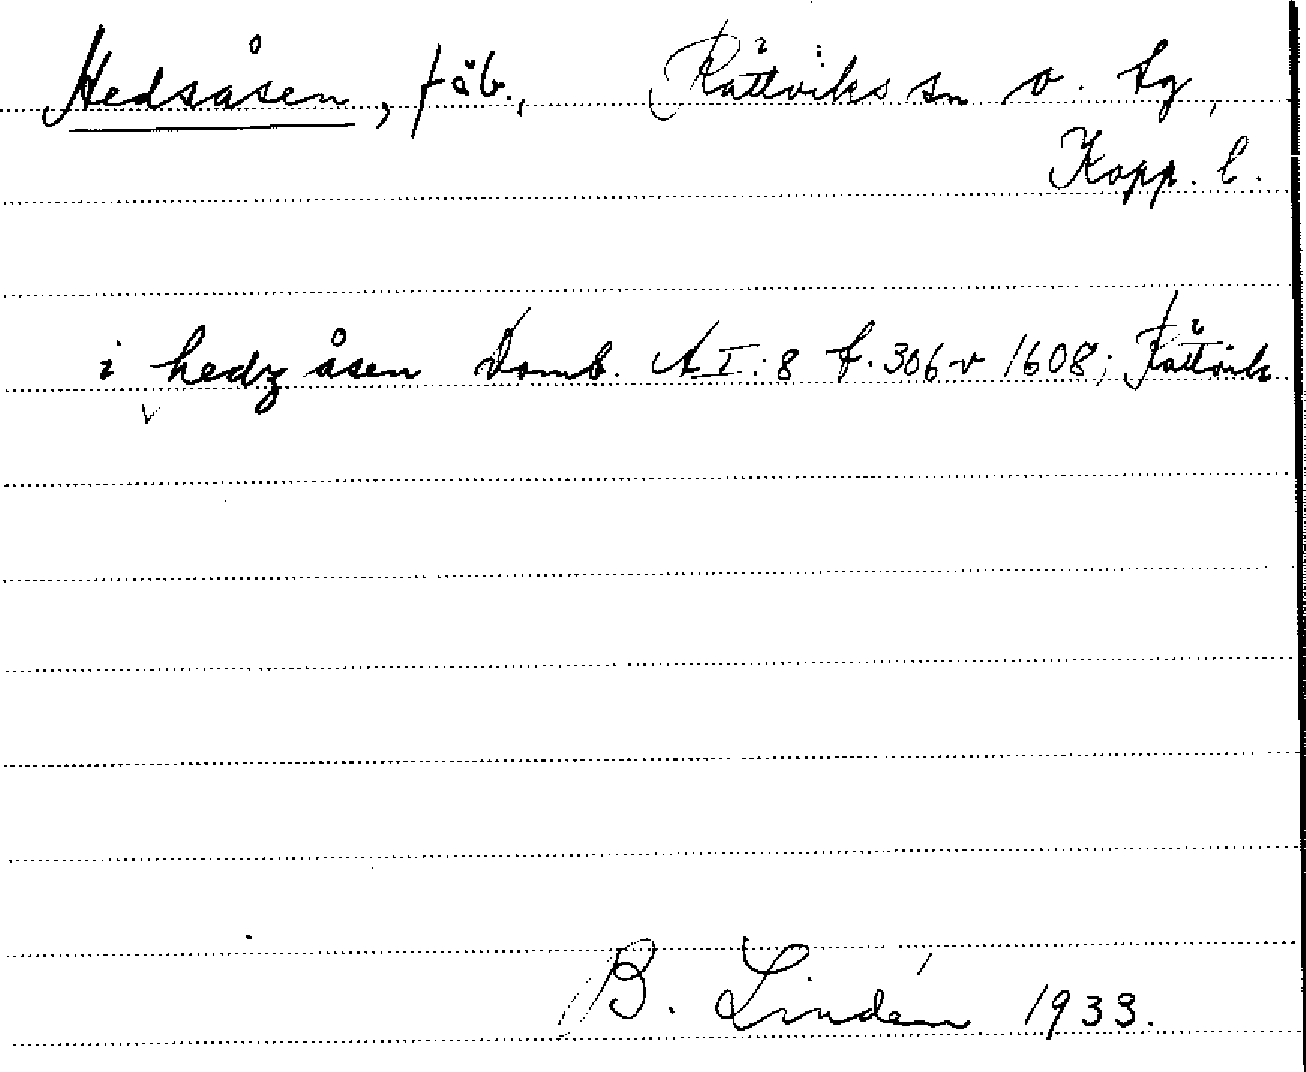 Hedsåsen, fäb., Rättviks sn o. tg,
Kopp. l.
i hedz åsen Domb. A I:8 f. 306 v 1608; Rättvik
v
B. Lindén 1933.